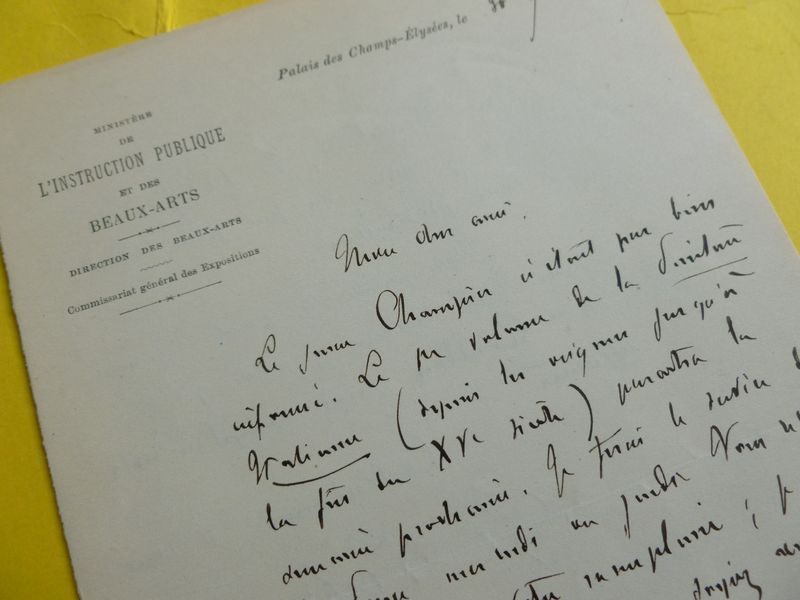 Palais des Champs-Élysées, le
MINISTÈRE
DE
L'INSTRUCTION PUBLIQUE
ET DES
BEAUX-ARTS
DIRECTION DES BEAUX-ARTS
Commissariat général des Expositions
Mon cher ami,
Le jeune Champier n'était pas bien
informé. Le 1er volume de la Peinture
Italienne (depuis les origines jusqu'à
la fin du XVe siècle) paraîtra la
semaine prochaine. Je ferai le service
mardi ou jeudi
exemplaire ;